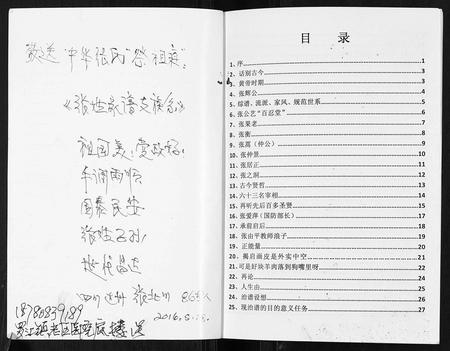 敬送"中华张氏祭祖宾":
《张姓家谱支谱系》
祖国美,党政好,
风调雨顺
国泰民安
张姓子孙
世代昌达
四川 达州 张北川
2016.
18780839189
目 录
1、序 1
2、话别古今 3
3、黄帝时期 3
4、张辉公 4
5、综谱、流派、家风、规范世系 5
6、张公艺"百忍堂" 6
7、张果老 7
8、张衡 8
9、张蒿(仲公) 9
10、张仲景 10
11、张居正 11
12、张之洞 12
13、古今贤哲 13
14、六十三名宰相 14
15、再听先后百多圣贤 15
16、张爱萍(国防部长) 17
17、承前启后 18
18、张由平教师浪子 19
19、正能量 20
20、揭启画皮是外实中空 21
21、可是好块羊肉落到狗嘴里呀 21
22、再论 22
23、人生由 23
24、治谱设想 25
25、现治谱的目的意义任务 27